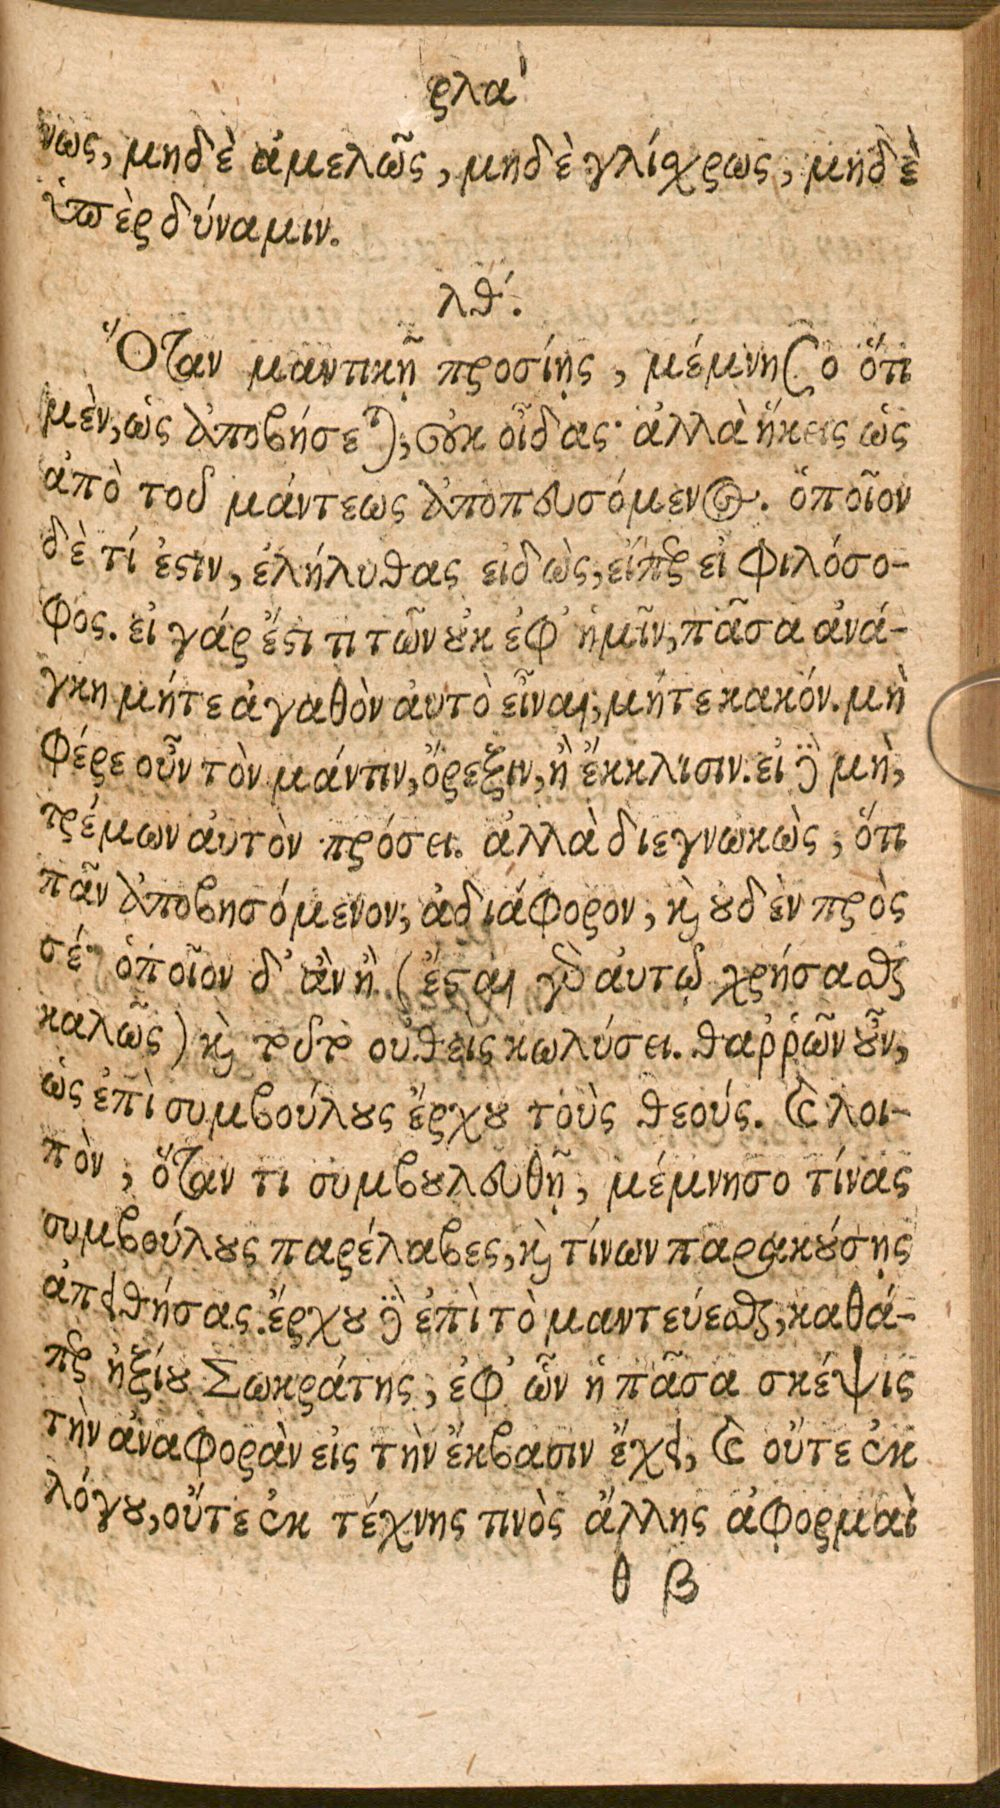 ρλα'
νως, μηδὲ ἀμελῶς, μηδὲ γλίχρως, μηδὲ
ὑπὲρ δύναμιν.
λθ'.
Ὅταν μαντικῇ προσίῃς, μέμνησο ὅτι
μὲν, ὡς ἀποβήσεται, οὐκ οἶδας· ἀλλὰ ἥκεις ὡς
ἀπὸ τοῦ μάντεως ἀποπευσόμενος. ὁποῖον
δὲ τί ἐστιν, ἐλήλυθας εἰδὼς, εἴπερ εἶ φιλόσο-
φος. εἰ γάρ ἔστι τι τῶν οὐκ ἐφ' ἡμῖν, πᾶσα ἀνά-
γκη μήτε ἀγαθὸν αὐτὸ εἶναι, μήτε κακόν. μὴ
φέρε οὖν τὸν μάντιν, ὄρεξιν, ἢ ἔκκλισιν. εἰ δὲ μὴ,
τρέμων αὐτὸν πρόσει. ἀλλὰ διεγνωκὼς, ὅτι
πᾶν ἀποβησόμενον, ἀδιάφορον, καὶ οὐδὲν πρὸς
σέ· ὁποῖον δ' ἂν ᾖ (ἔσται γὰρ αὐτῷ χρήσασθαι
καλῶς) καὶ τοῦτο οὐθεὶς κωλύσει. θαῤῥῶν οὖν,
ὡς ἐπὶ συμβούλους ἔρχου τοὺς θεούς. καὶ λοι-
πὸν, ὅταν τι συμβουλευθῇ, μέμνησο τίνας
συμβούλους παρέλαβες, καὶ τίνων παρακούσῃς
ἀπειθήσας. ἔρχου δὲ ἐπὶ τὸ μαντεύεσθαι, καθά-
περ ἠξίου Σωκράτης, ἐφ' ὧν ἡ πᾶσα σκέψις
τὴν ἀναφορὰν εἰς τὴν ἔκβασιν ἔχει, καὶ οὔτε ἐκ
λόγου, οὔτε ἐκ τέχνης τινὸς ἄλλης ἀφορμαὶ
θ β